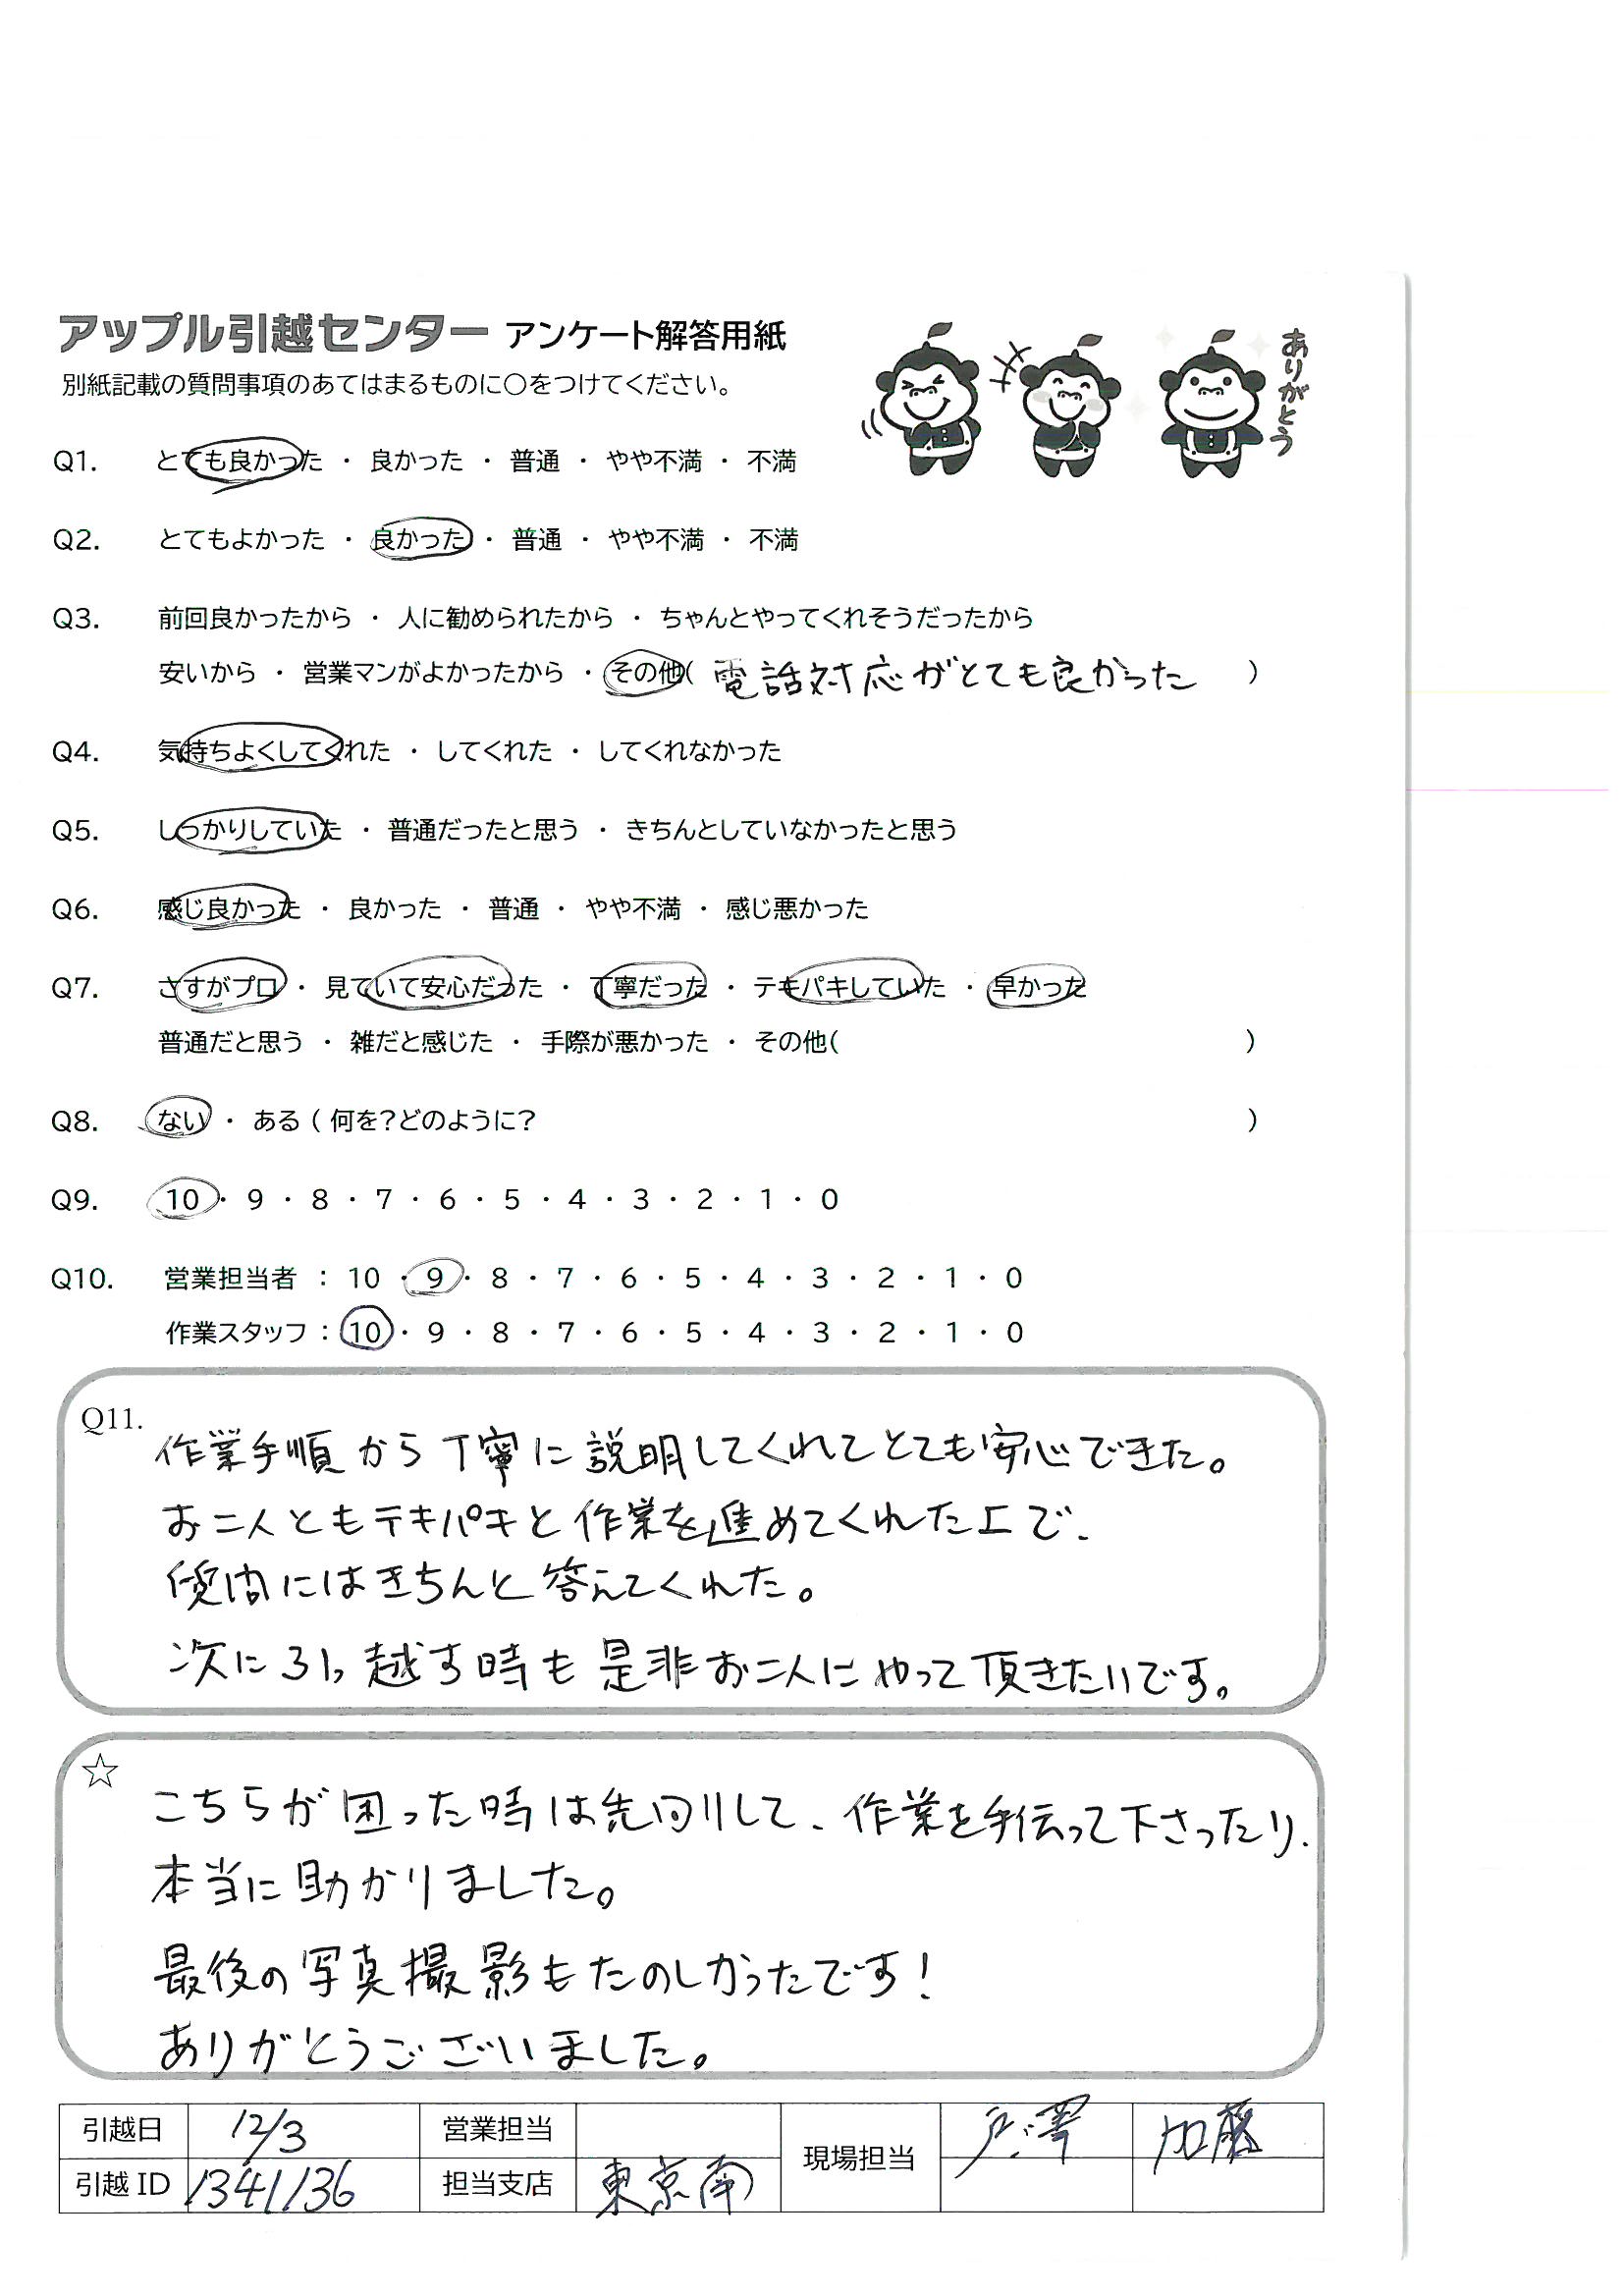 アップル引越センター アンケート解答用紙
別紙記載の質問事項のあてはまるものに○をつけてください。
ありがとう
Q1. とても良かった ・ 良かった ・ 普通 ・ やや不満 ・ 不満
Q2. とてもよかった ・ 良かった ・ 普通 ・ やや不満 ・ 不満
Q3. 前回良かったから ・ 人に勧められたから ・ ちゃんとやってくれそうだったから
安いから ・ 営業マンがよかったから ・ その他( 電話対応がとても良かった )
Q4. 気持ちよくしてくれた ・ してくれた ・ してくれなかった
Q5. しっかりしていた ・ 普通だったと思う ・ きちんとしていなかったと思う
Q6. 感じ良かった ・ 良かった ・ 普通 ・ やや不満 ・ 感じ悪かった
Q7. さすがプロ ・ 見ていて安心だった ・ 丁寧だった ・ テキパキしていた ・ 早かった
普通だと思う ・ 雑だと感じた ・ 手際が悪かった ・ その他( )
Q8. ない ・ ある ( 何を?どのように? )
Q9. 10 ・ 9 ・ 8 ・ 7 ・ 6 ・ 5 ・ 4 ・ 3 ・ 2 ・ 1 ・ 0
Q10. 営業担当者 : 10 ・ 9 ・ 8 ・ 7 ・ 6 ・ 5 ・ 4 ・ 3 ・ 2 ・ 1 ・ 0
作業スタッフ : 10 ・ 9 ・ 8 ・ 7 ・ 6 ・ 5 ・ 4 ・ 3 ・ 2 ・ 1 ・ 0
Q11. 作業手順から丁寧に説明してくれてとても安心できた。
お二人ともテキパキと作業を進めてくれた上で、
質問にはきちんと答えてくれた。
次に引っ越す時も是非お二人にやって頂きたいです。
☆ こちらが困った時は先回りして、作業を手伝って下さったり、
本当に助かりました。
最後の写真撮影もたのしかったです!
ありがとうございました。
引越日 12/3 営業担当 現場担当 戸澤 加藤
引越ID 1341136 担当支店 東京南